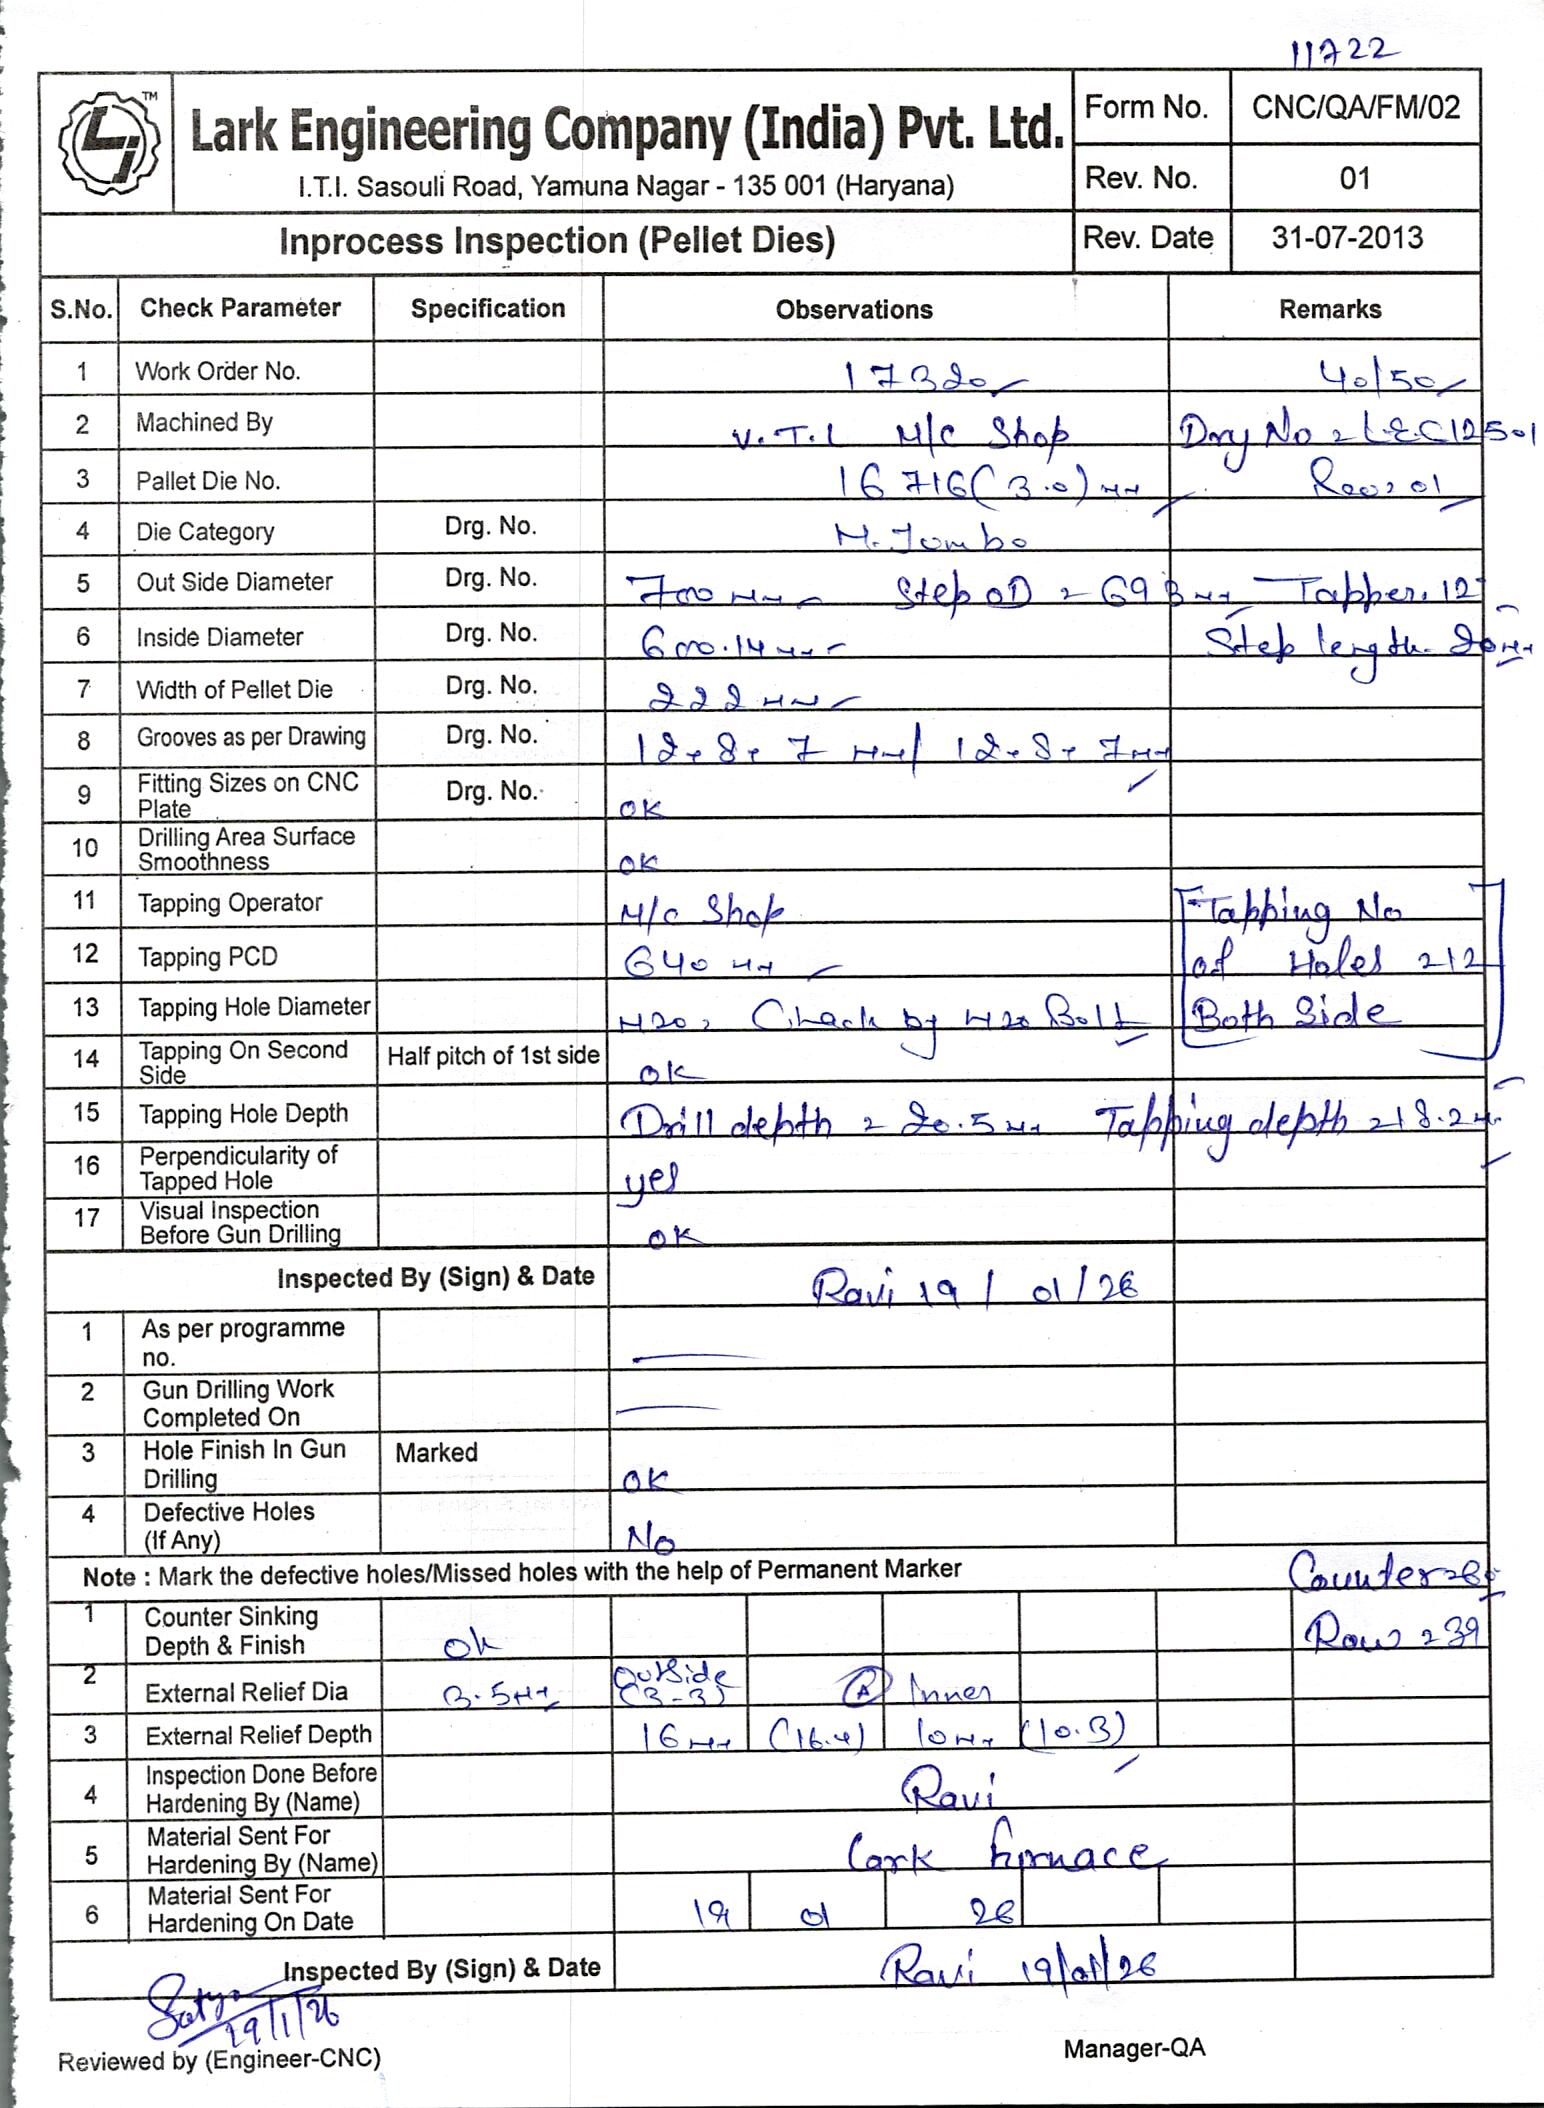 11722
TM
Lark Engineering Company (India) Pvt. Ltd.
I.T.I. Sasouli Road, Yamuna Nagar - 135 001 (Haryana)
Form No. CNC/QA/FM/02
Rev. No. 01
Inprocess Inspection (Pellet Dies) Rev. Date 31-07-2013
S.No. Check Parameter Specification Observations Remarks
1 Work Order No. 17320 40/50
2 Machined By V.T.L M/C Shop Drg No = LEC12501
3 Pallet Die No. 16716(3.0)mm Rev=01
4 Die Category Drg. No. M.Jumbo
5 Out Side Diameter Drg. No. 700mm Step OD = 693mm Tapper. 12°
6 Inside Diameter Drg. No. 600.14mm Step length. 20mm
7 Width of Pellet Die Drg. No. 222mm
8 Grooves as per Drawing Drg. No. 12+8+7 mm/ 12+8+7mm
9 Fitting Sizes on CNC Plate Drg. No. OK
10 Drilling Area Surface Smoothness OK
11 Tapping Operator M/C Shop Tapping No
12 Tapping PCD 640 mm of Holes = 12
13 Tapping Hole Diameter M20, Chack by M20 Bolt Both Side
14 Tapping On Second Side Half pitch of 1st side OK
15 Tapping Hole Depth Drill depth = 20.5mm Tapping depth = 18.2mm
16 Perpendicularity of Tapped Hole yes
17 Visual Inspection Before Gun Drilling OK
Inspected By (Sign) & Date Ravi 19/01/26
1 As per programme no.
2 Gun Drilling Work Completed On
3 Hole Finish In Gun Drilling Marked OK
4 Defective Holes (If Any) No
Note : Mark the defective holes/Missed holes with the help of Permanent Marker
1 Counter Sinking Depth & Finish Ok Row = 39
2 External Relief Dia 3.5mm Outside (3-3) A Inner
3 External Relief Depth 16mm (16.4) 10mm (10.3)
4 Inspection Done Before Hardening By (Name) Ravi
5 Material Sent For Hardening By (Name) Lark furnace
6 Material Sent For Hardening On Date 19 01 26
Inspected By (Sign) & Date Ravi 19/01/26
Satya
19/1/26
Reviewed by (Engineer-CNC) Manager-QA